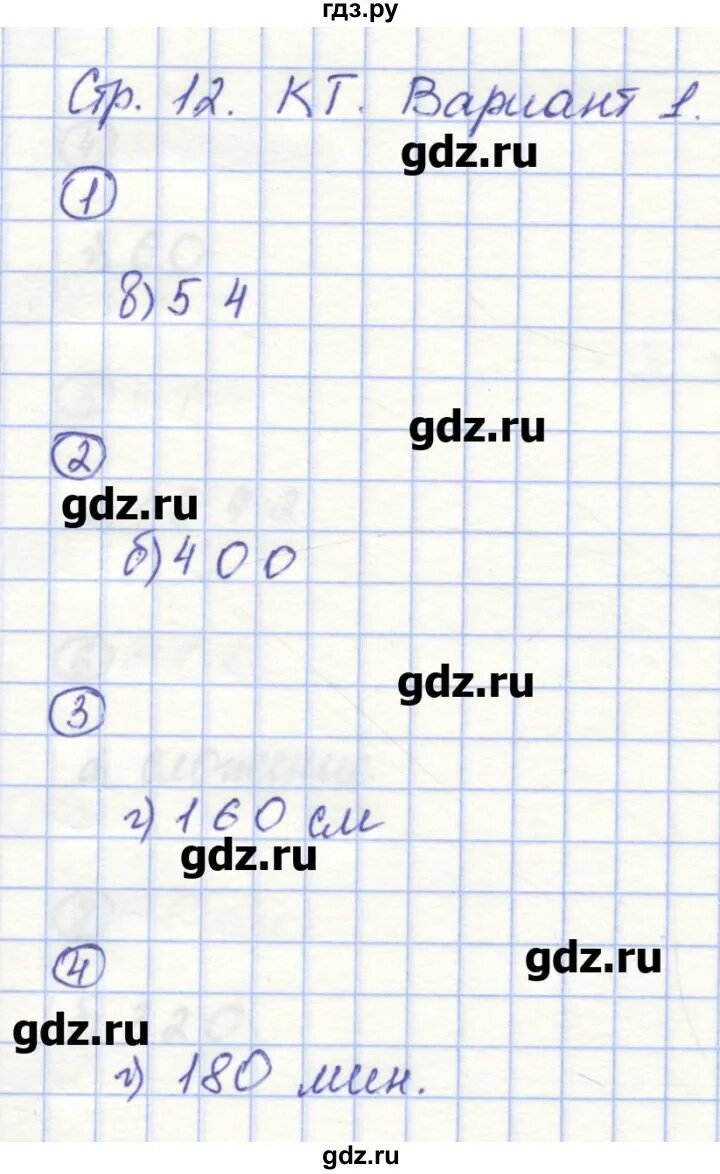 гдз.ру
Стр. 12. КТ. Вариант 1.
gdz.ru
1
в) 5 4
gdz.ru
2
gdz.ru
б) 4 0 0
gdz.ru
3
г) 1 6 0 см
gdz.ru
gdz.ru
4
gdz.ru
г) 180 мин.
gdz.ru